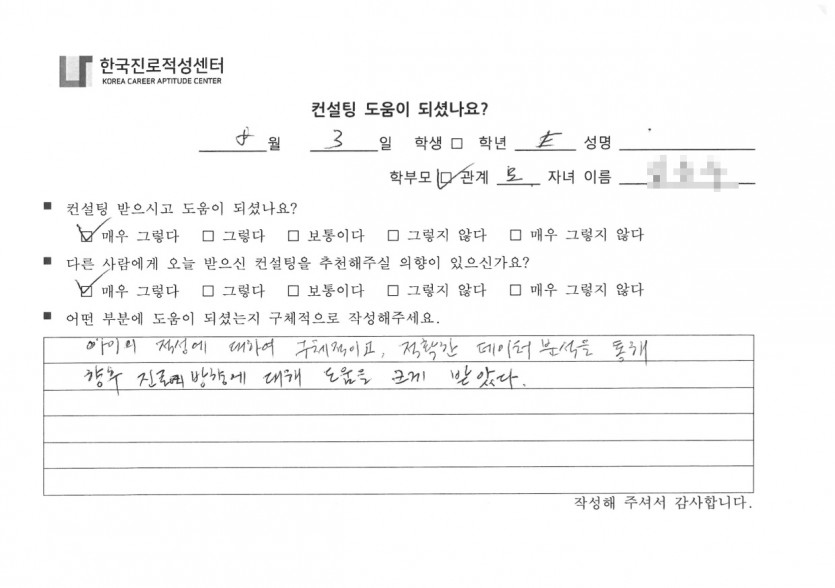 한국진로적성센터
KOREA CAREER APTITUDE CENTER
컨설팅 도움이 되셨나요?
8 월 3 일 학생 □ 학년 성명
학부모 ☑ 관계 모 자녀 이름
■ 컨설팅 받으시고 도움이 되셨나요?
☑ 매우 그렇다 □ 그렇다 □ 보통이다 □ 그렇지 않다 □ 매우 그렇지 않다
■ 다른 사람에게 오늘 받으신 컨설팅을 추천해주실 의향이 있으신가요?
☑ 매우 그렇다 □ 그렇다 □ 보통이다 □ 그렇지 않다 □ 매우 그렇지 않다
■ 어떤 부분에 도움이 되셨는지 구체적으로 작성해주세요.
아이의 적성에 대하여 구체적이고, 정확한 데이터 분석을 통해
향후 진로의 방향에 대해 도움을 크게 받았다.
작성해 주셔서 감사합니다.